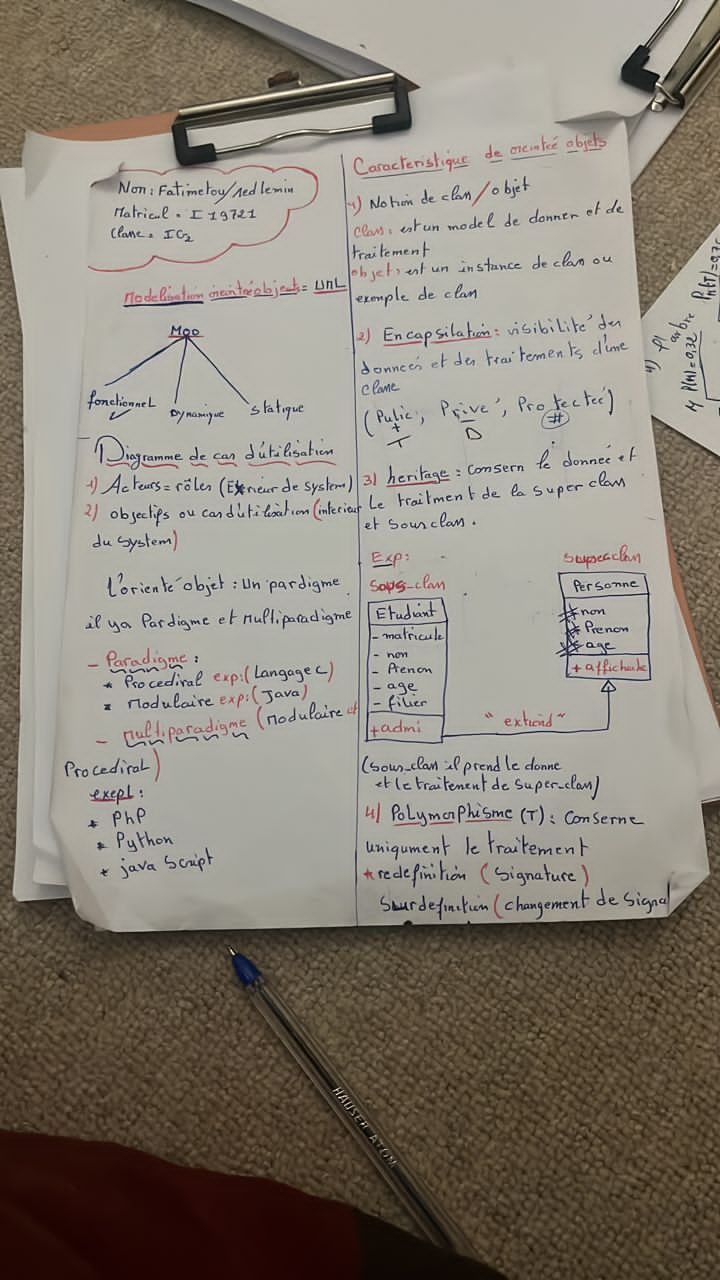 Non : Fatimetou/sed lemin
Matricul = I 19721
Classe = IG2
Modelisation orientré objects = UML
Moo
fonctionnel
Dynamique
statique
Diagramme de cas d'utilisation
1) Acteurs = rôles (Exterieur de system)
2) objectifs ou cas d'utilisation (interieur
du system)
L'orienté objet : Un pardigme
il ya Pardigme et Multiparadigme
- Paradigme :
* Procediral exp: (Langage c)
* Modulaire exp: (Java)
- multiparadigme (modulaire et
Procediral)
exepl :
* PhP
* Python
* java Script
Caracteristique de orientré objets
1) Notion de clan / objet
Class : est un model de donner et de
traitement
objet : est un instance de clan ou
exemple de clan
2) Encapsilation : visibilité des
donneés et des traitements d'une
classe
(Pulic, Privé, Protecteé)
+ #
3) heritage : Consern le donneé et
Le traitment de la super class
et Sous clan.
Exp:
Sous-clan
Super-clan
Etudiant
- matricule
- non
- Prenon
- age
- filier
+ admi
Personne
# non
# Prenon
# age
+ affichade
"extend"
(Sous-clan il prend le donne
et le traitement de super-clan)
4) Polymorphisme (T) : Conserne
uniqument le traitement
* redefinition (Signature)
Surdefinition (changement de Signa
P(A) = 0,32
arbre
HAUSER ATOM